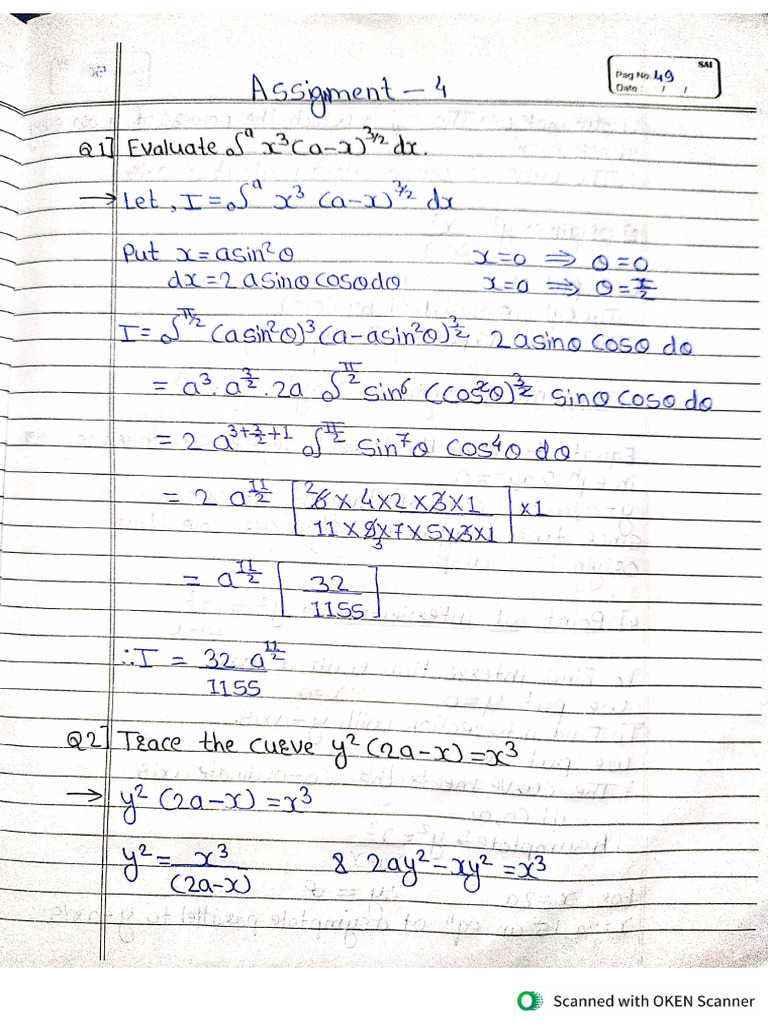 SAI
Pag No. 49
Date : / /
Assignment - 4
Q1] Evaluate ₀∫ᵃ x³(a-x)^3/2 dx.
→ Let, I = ₀∫ᵃ x³ (a-x)^3/2 dx
Put x = asin²θ x=0 ⇒ θ=0
dx = 2 asinθ cosθdθ x=a ⇒ θ=π/2
I = ₀∫^π/2 (asin²θ)³ (a-asin²θ)^3/2 . 2asinθ cosθ dθ
= a³. a^3/2 . 2a ₀∫^π/2 sin⁶ (cos²θ)^3/2 sinθ cosθ dθ
= 2 a^3+3/2+1 ₀∫^π/2 sin⁷θ cos⁴θ dθ
= 2 a^11/2 [ 2 6×4×2×3×1 / 11×9×7×5×3×1 3 ] ×1
= a^11/2 [ 32 / 1155 ]
∴ I = 32 a^11/2 / 1155
Q2] Trace the curve y²(2a-x) = x³
→ y² (2a-x) = x³
y² = x³ / (2a-x) & 2ay² - xy² = x³
Scanned with OKEN Scanner